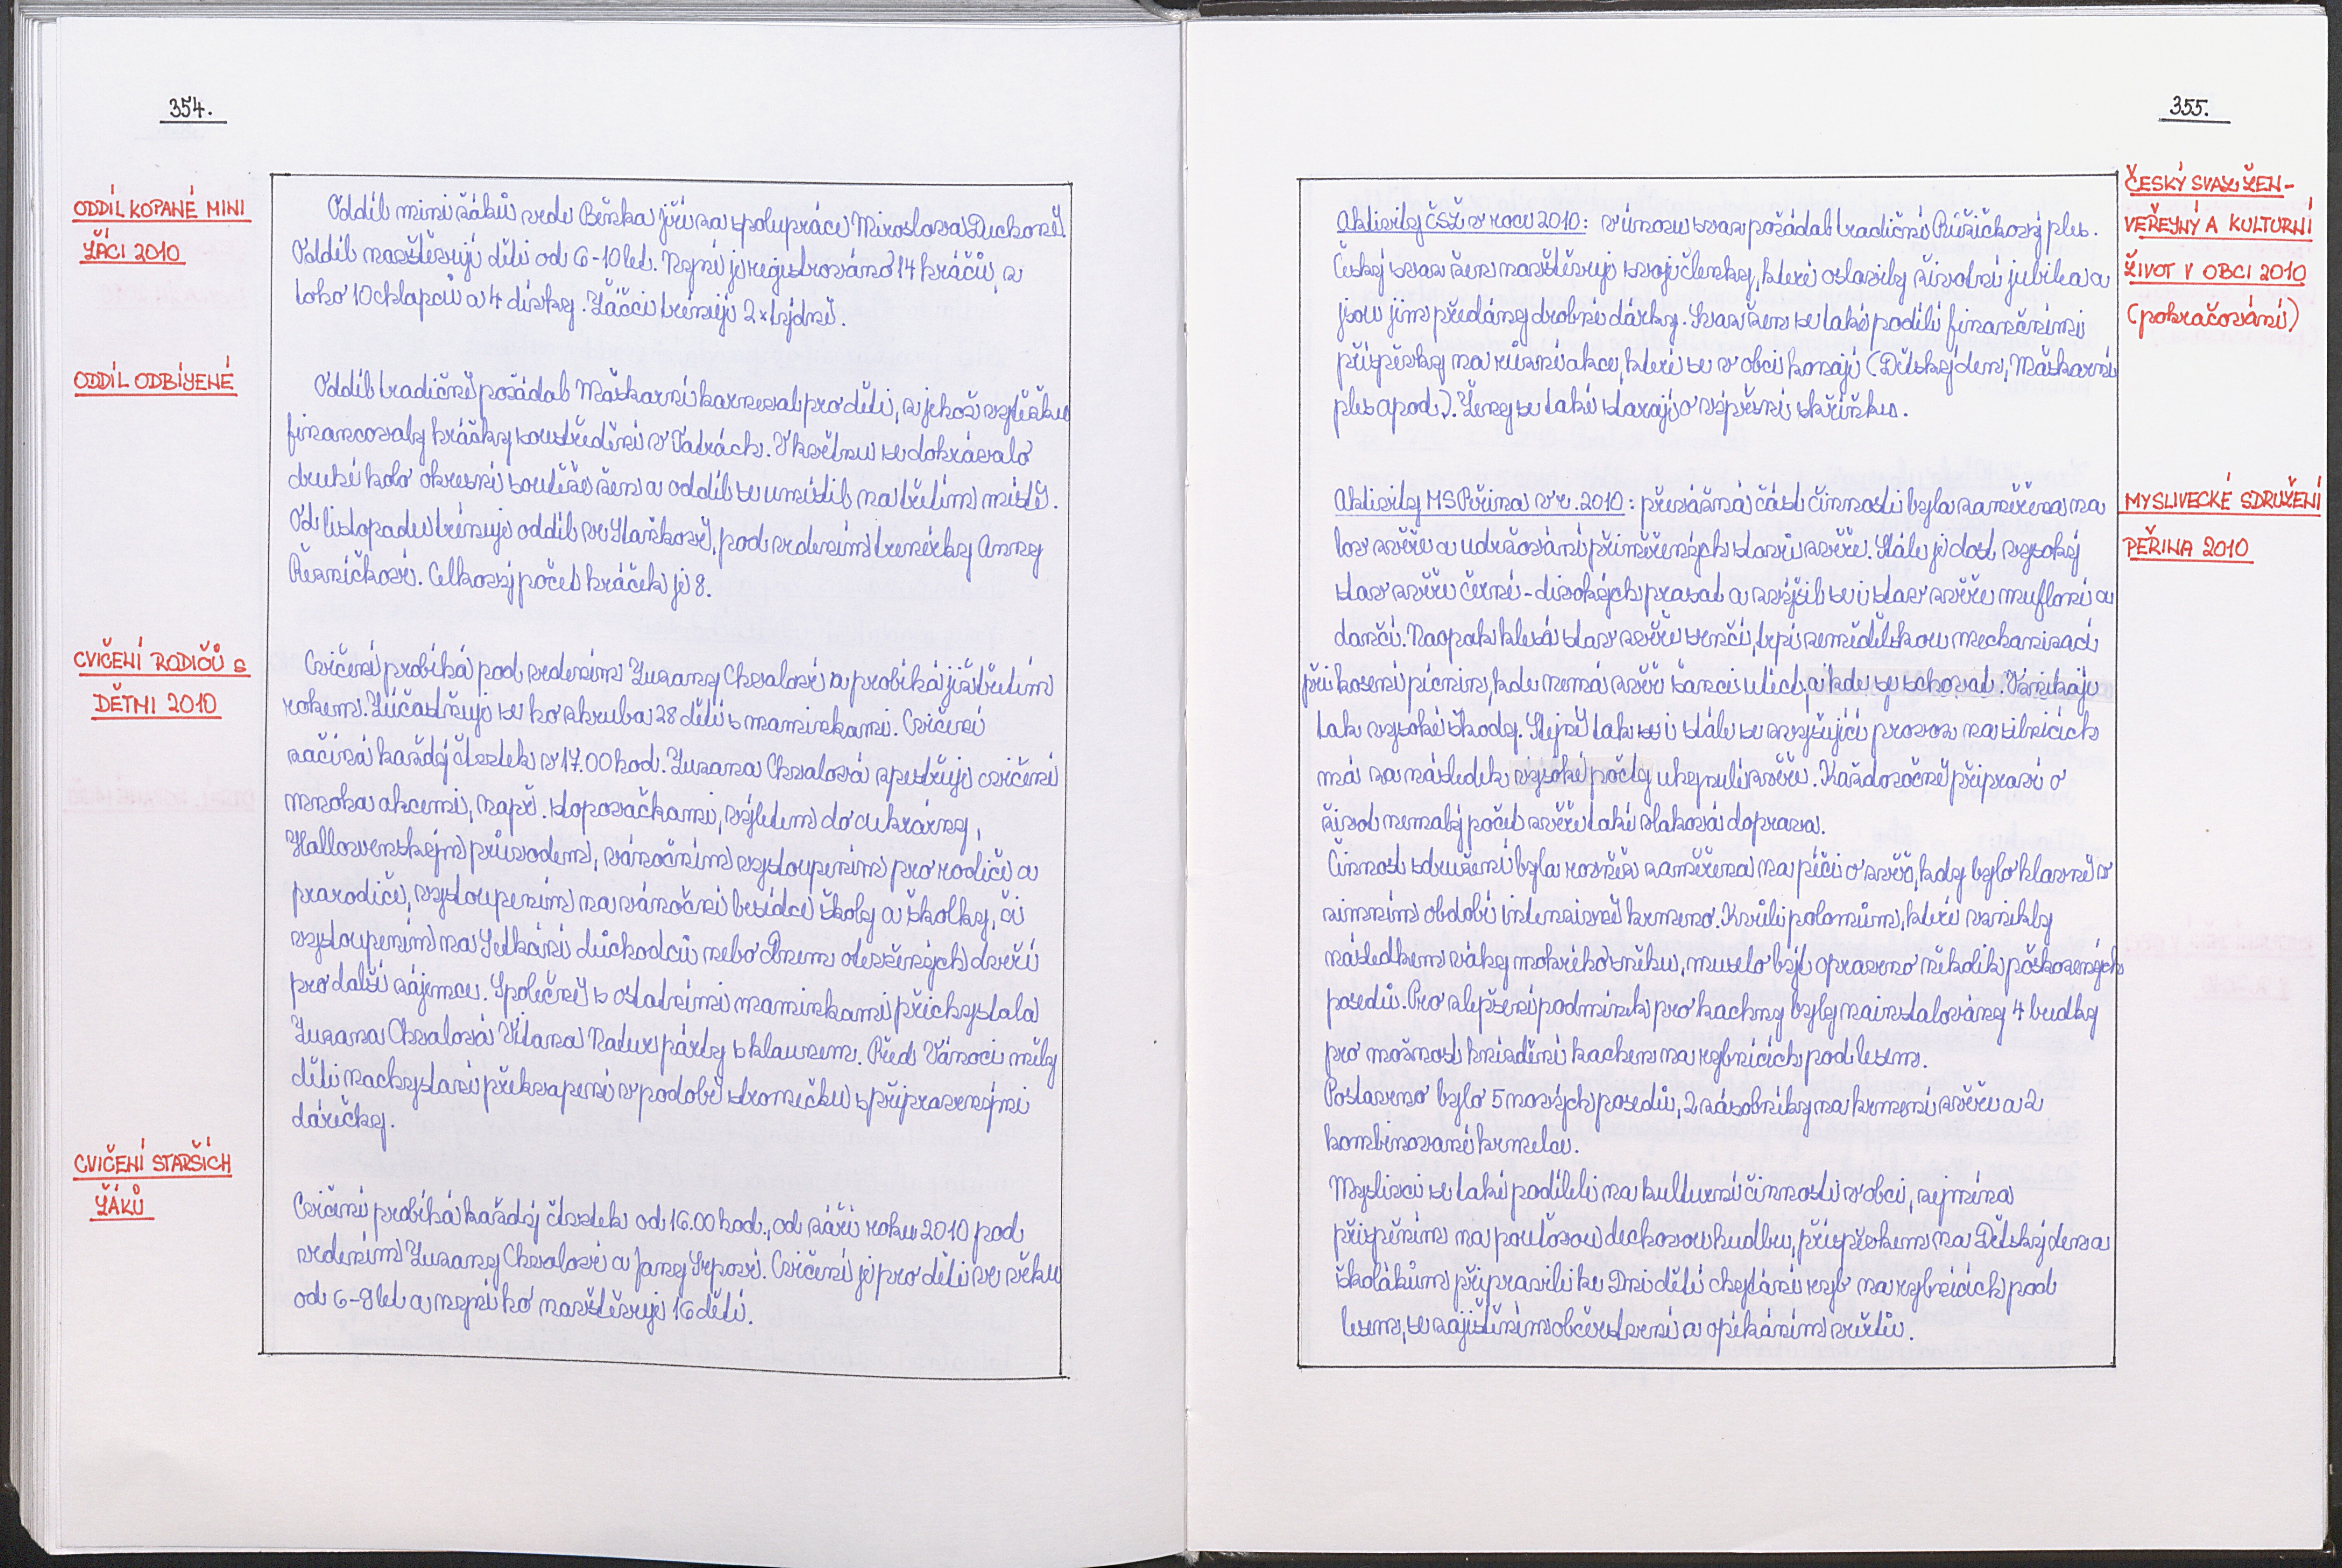 354.
ODDÍL KOPANÉ MINI
ŽÁCI 2010
Oddíl mini žáků vede Beňka Jiří za spolupráce Miroslava Duchoně.
Oddíl navštěvují děti od 6-10 let. Nyní je registrováno 14 hráčů, z
toho 10 chlapců a 4 dívky. Žáčci trénují 2x týdně.
ODDÍL ODBÍJENÉ
Oddíl tradičně pořádal Maškarní karneval pro děti, z jehož výtěžku
financovaly hráčky soustředění v Tatrách. V květnu se dohrávalo
druhé kolo okresní soutěže žen a oddíl se umístil na třetím místě.
Od listopadu trénuje oddíl ve Staňkově, pod vedením trenérky Anny
Řezníčkové. Celkový počet hráček je 8.
CVIČENÍ RODIČŮ S
DĚTMI 2010
Cvičení probíhá pod vedením Zuzany Chvalové a probíhá již třetím
rokem. Zúčastňuje se ho zhruba 28 dětí s maminkami. Cvičení
začíná každý čtvrtek v 17.00 hod. Zuzana Chvalová zpestřuje cvičení
mnoha akcemi, např. stopovačkami, výletem do cukrárny,
Hallovenským průvodem, vánočním vystoupením pro rodiče a
prarodiče, vystoupením na vánoční besídce školy a školky, či
vystoupením na Setkání důchodců nebo Dnem otevřených dveří
pro další zájemce. Společně s ostatními maminkami přichystala
Zuzana Chvalová Vítana Natur párty s klaunem. Před Vánoci měly
děti nachystané překvapení v podobě stromečku s připravenými
dárečky.
CVIČENÍ STARŠÍCH
ŽÁKŮ
Cvičení probíhá každý čtvrtek od 16.00 hod., od září roku 2010 pod
vedením Zuzany Chvalové a Jany Srpové. Cvičení je pro děti ve věku
od 6-8 let a nyní ho navštěvuje 16 dětí.
355.
ČESKÝ SVAZ ŽEN-
VEŘEJNÝ A KULTURNÍ
ŽIVOT V OBCI 2010
(pokračování)
Aktivity ČSŽ v roce 2010: v únoru svaz pořádal tradiční Růžičkový ples.
Český svaz žen navštěvuje svoje členky, které oslavily životní jubilea a
jsou jim předány drobné dárky. Svaz žen se také podílí finančními
příspěvky na různé akce, které se v obci konají (Dětský den, Maškarní
ples apod.). Ženy se také starají o vývěsní skříňku.
MYSLIVECKÉ SDRUŽENÍ
PEŘINA 2010
Aktivity MS Peřina v r. 2010: převážná část činnosti byla zaměřena na
lov zvěře a udržování přiměřených stavů zvěře. Stále je dost vysoký
stav zvěře černé - divokých prasat a zvýšil se i stav zvěře mufloní a
dančí. Naopak klesá stav zvěře srnčí, trpí zemědělskou mechanizací
při kosení pícnin, kde nemá zvěř šanci utéct, a kde se schovat. Vznikají
tak vysoké škody. Stejně tak se i stále se zvyšující provoz na silnicích
má za následek vysoké počty uhynulé zvěře. Každoročně připraví o
život nemalý počet zvěře také vlaková doprava.
Činnost sdružení byla rovněž zaměřena na péči o zvěř, kdy bylo hlavně v
zimním období intenzivně krmeno. Kvůli polomům, které vznikly
následkem váhy mokrého sněhu, muselo být opraveno několik poškozených
posedů. Pro zlepšení podmínek pro kachny byly nainstalovány 4 budky
pro možnost hnízdění kachen na rybnících pod lesem.
Postaveno bylo 5 nových posedů, 2 zásobníky na krmení zvěře a 2
kombinované krmelce.
Myslivci se také podíleli na kulturní činnosti v obci, zejména
přispěním na pouťovou dechovou hudbu, příspěvkem na Dětský den a
školákům připravili ke Dni dětí chytání ryb na rybnících pod
lesem, se zajištěním občerstvení a opékáním vuřtů.